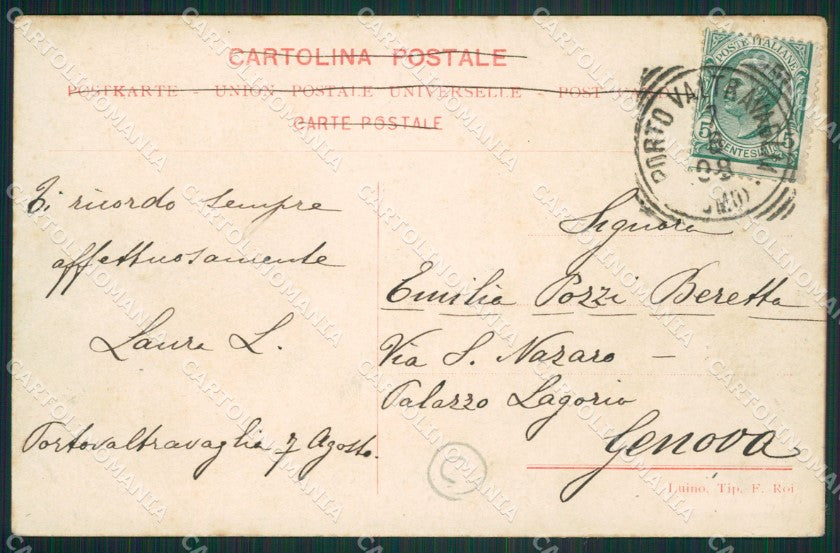 CARTOLINA POSTALE
POSTKARTE - UNION POSTALE UNIVERSELLE - POST
CARTE POSTALE
POSTE ITALIANE
5 CENTESIMI 5
PORTO VALTRAVAGLIA
8
08
Ti ricordo sempre
affettuosamente
Laura L.
Portovaltravaglia 7 Agosto.
Signora
Emilia Pozzi Beretta
Via S. Nazaro -
Palazzo Lagorio
Genova
C
Luino, Tip. F. Roi
CARTOLINOMANIA